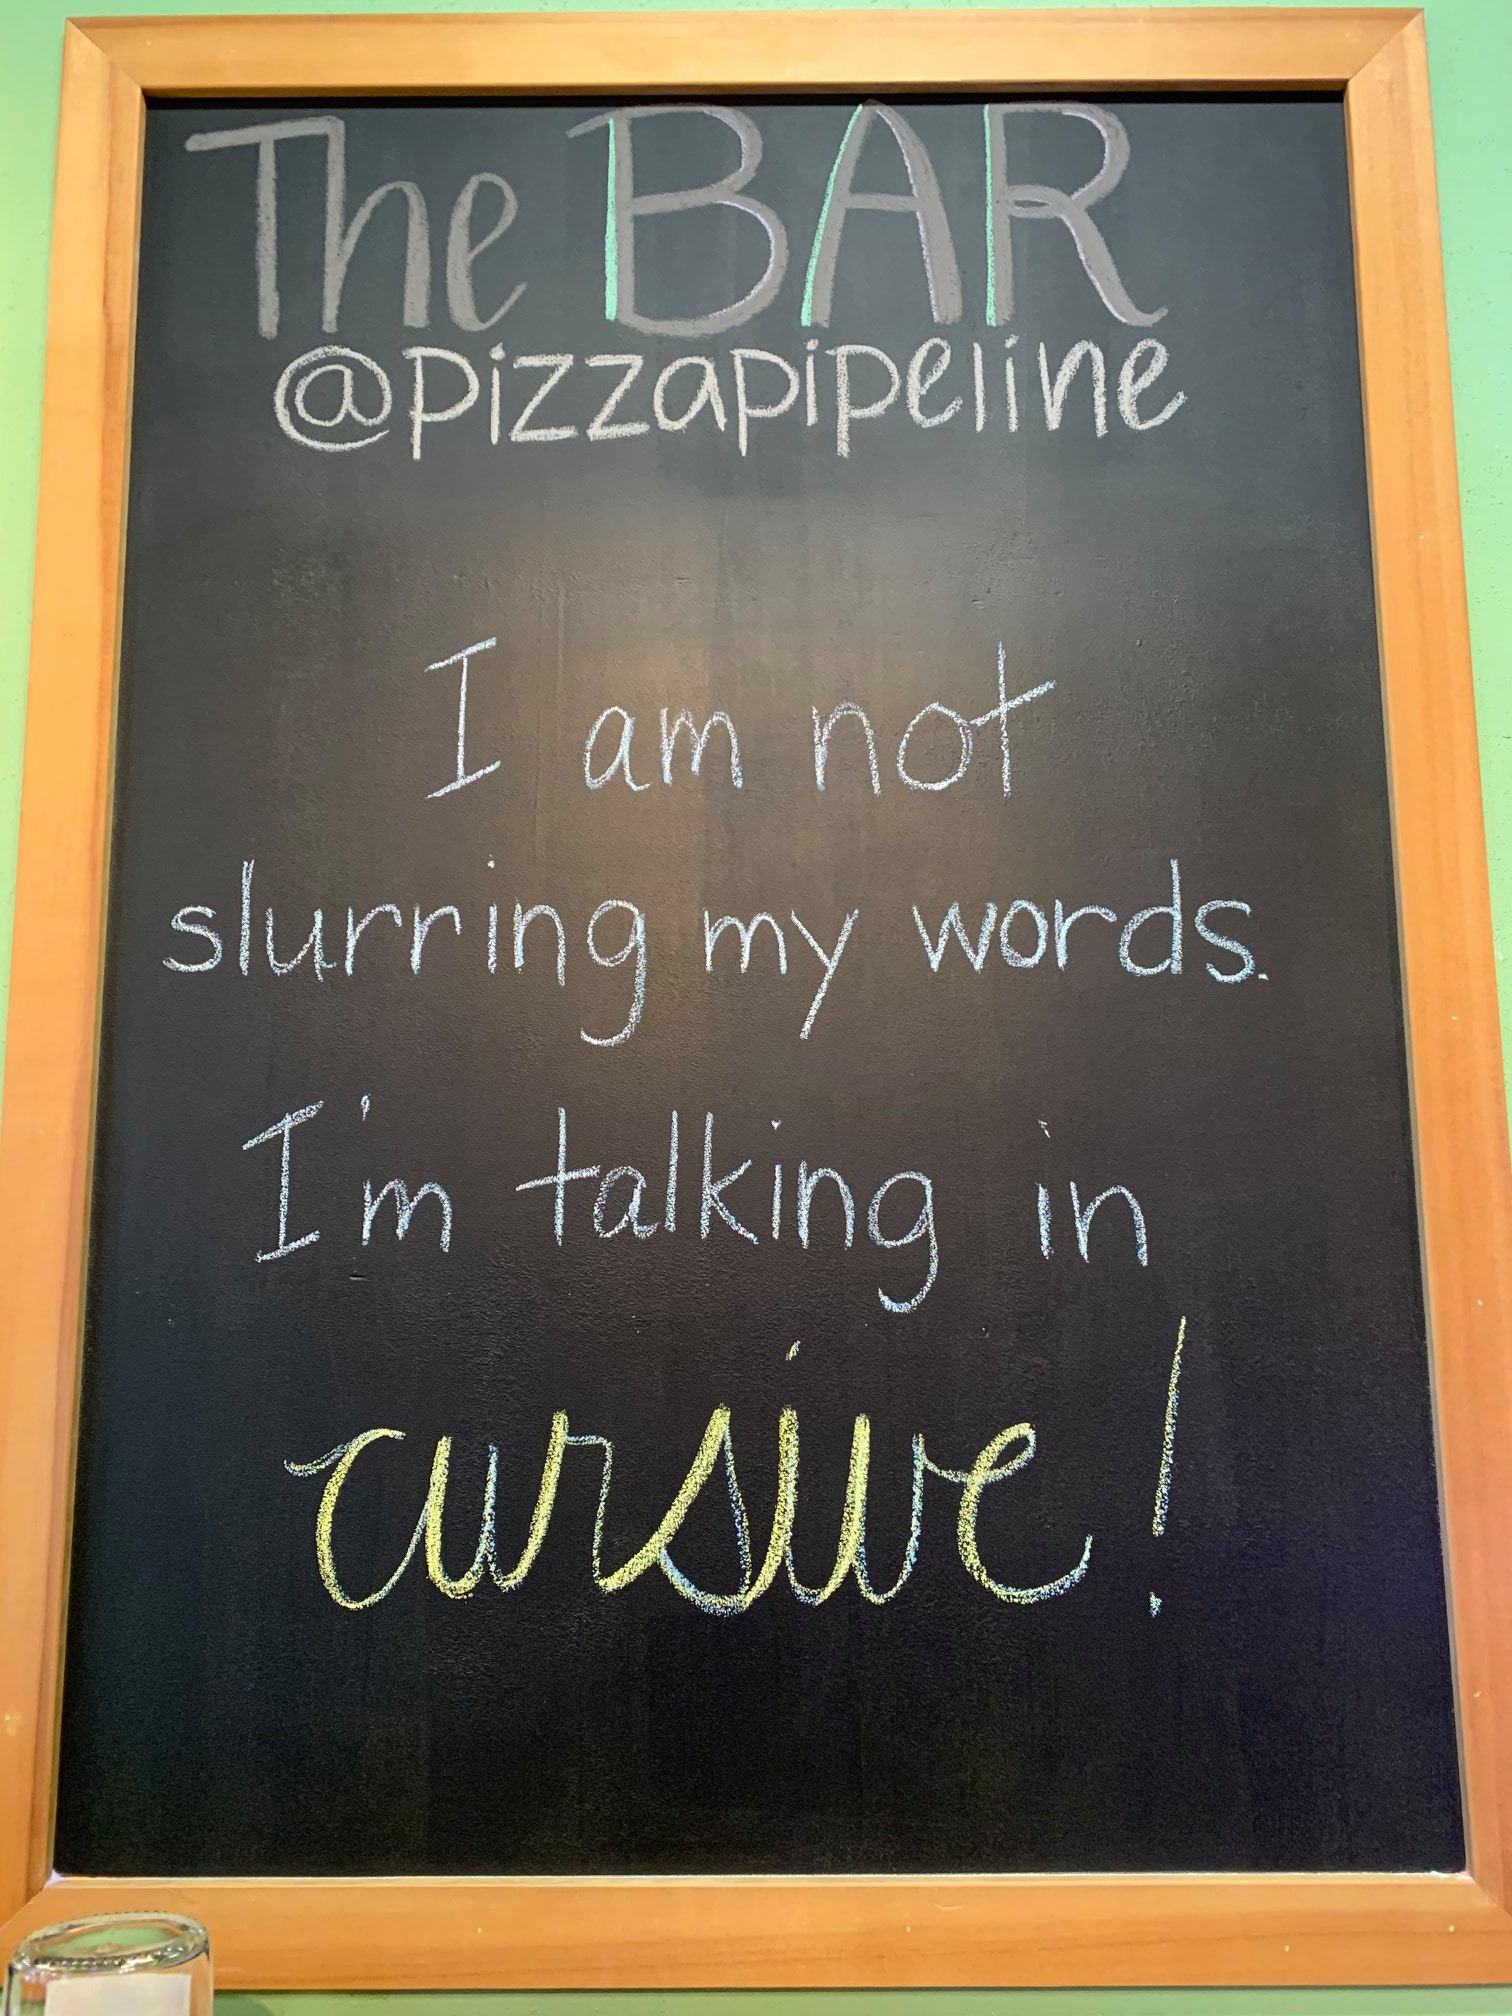 The BAR
@pizzapipeline
I am not
slurring my words.
I'm talking in
cursive!